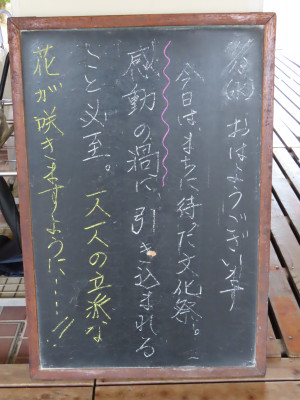 (水) おはようございます
今日は、まちに待った文化祭。
感動の渦に、引き込まれる
こと必至。一人一人の立派な
花が咲きますように・・・・!!